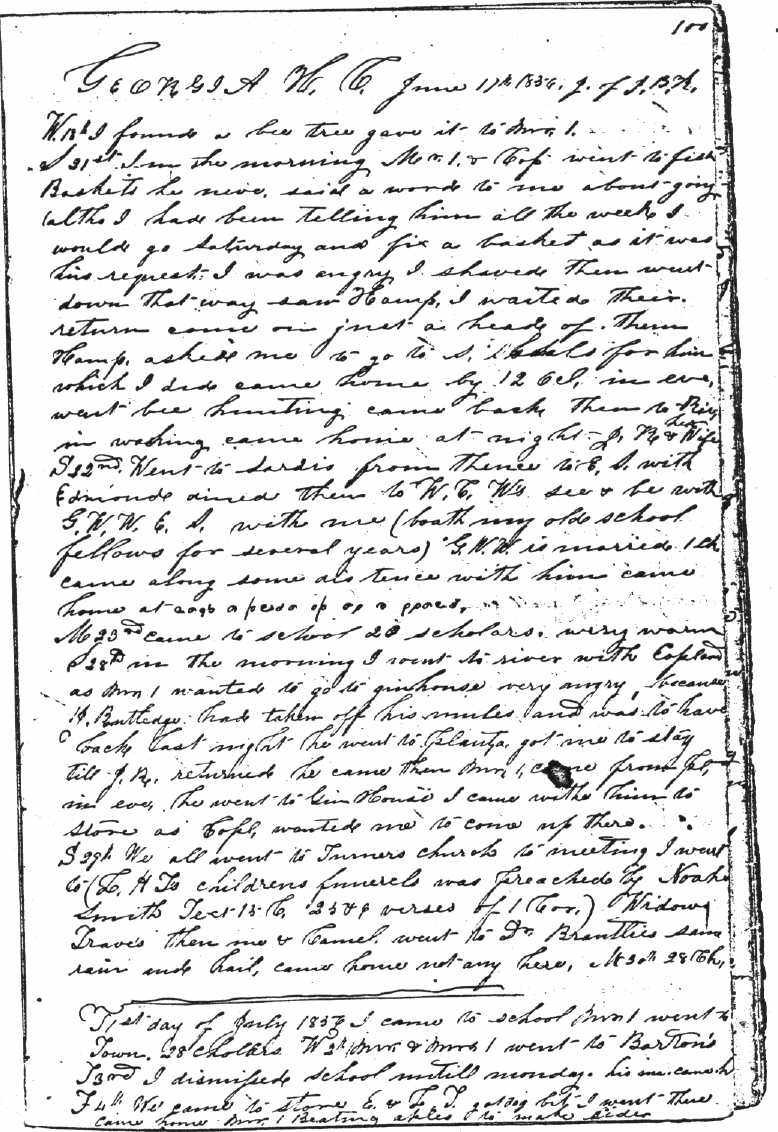 100
GEORGIA H. C. June 17th 1856. J. of J. B. K.
W. 18th I found a bee tree gave it to Mr. I.
S 21st I in the morning Mr. I. & Cop went to fish
Baskets he neve. said a word to me about going
(altho I had been telling him all the week I
would go Saturday and fix a basket as it was
his request. I was angry I shaved then went
down that way saw Hamp, I waited their
return came on just a head of them
Hamp. asked me to go to S. for him
which I did came home by 12 Ocl, in eve,
went bee hunting came back then to Riv
in washing came home at night J. R. & Wife
her
S 22nd. Went to Sardis from thence to E. S. with
Edmonds dined then to W. C. Ws see & be with
G. W. W. E. S. with me (boath my olde school
fellows for several years) G. W. W. is married 1 ch
came along some distence with him came
home at
M 23rd came to school 28 scholars. very warm
S 28th in the morning I went to river with Copland
as Mr. I wanted to go to ginhouse very angry, because
H. Rutledge had taken off his mules and was to have
back last night he went to got me to stay
till J. R. returned he came then Mr. I, came from
in eve, he went to Gin House I came withe him to
store as Copl, wanted me to come up there.
S 29th We all went to Turners church to meeting I went
to (L. H Ts childrens funerels was preached by Noah
Smith Text 15 C. verses of 1 Cor.) Widow
Traves then me & Camel. went to Dr. Brantlies saw
rain and hail, came home not any here, M 30th 28 Ch,
T 1st day of July 1856 I came to school Mr. I went to
Town. 28 cholers W 2nd Mr. & Mrs. I went to Barton's
T 3rd I dismissed school untill monday.
F 4th We came to store E. & L. T. got dog bit I went there
came home Mr. I Beating apples to make cider